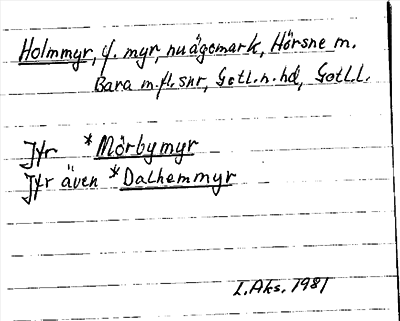 Holmmyr, f. myr, nu ägomark, Hörsne m.
Bara m.fl. snr, Gotl. n. hd, Gotl.l.
Jfr *Mörbymyr
Jfr även *Dalhemmyr
I. Aks. 1981